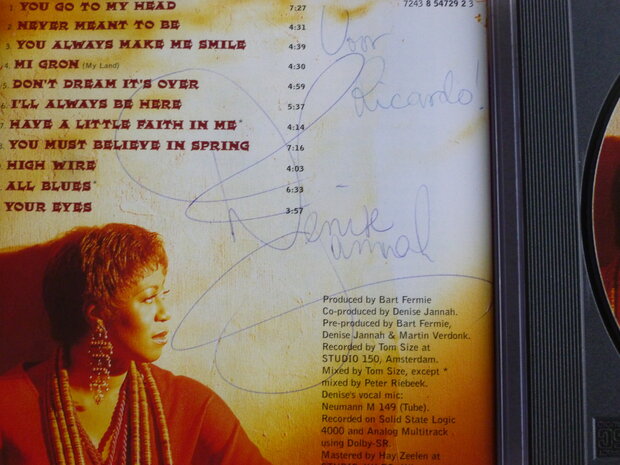 1. YOU GO TO MY HEAD 7:27
2. NEVER MEANT TO BE 4:31
3. YOU ALWAYS MAKE ME SMILE 4:39
4. MI GRON (My Land) 4:30
5. DON'T DREAM IT'S OVER 4:59
6. I'LL ALWAYS BE HERE 5:37
7. HAVE A LITTLE FAITH IN ME* 4:14
8. YOU MUST BELIEVE IN SPRING 7:16
HIGH WIRE 4:03
ALL BLUES* 6:33
YOUR EYES 3:57
7243 8 54729 2 3
Voor
Ricardo!
Denise
Jannah
Produced by Bart Fermie
Co-produced by Denise Jannah.
Pre-produced by Bart Fermie,
Denise Jannah & Martin Verdonk.
Recorded by Tom Size at
STUDIO 150, Amsterdam.
Mixed by Tom Size, except *
mixed by Peter Riebeek.
Denise's vocal mic:
Neumann M 149 (Tube).
Recorded on Solid State Logic
4000 and Analog Multitrack
using Dolby-SR.
Mastered by Hay Zeelen at